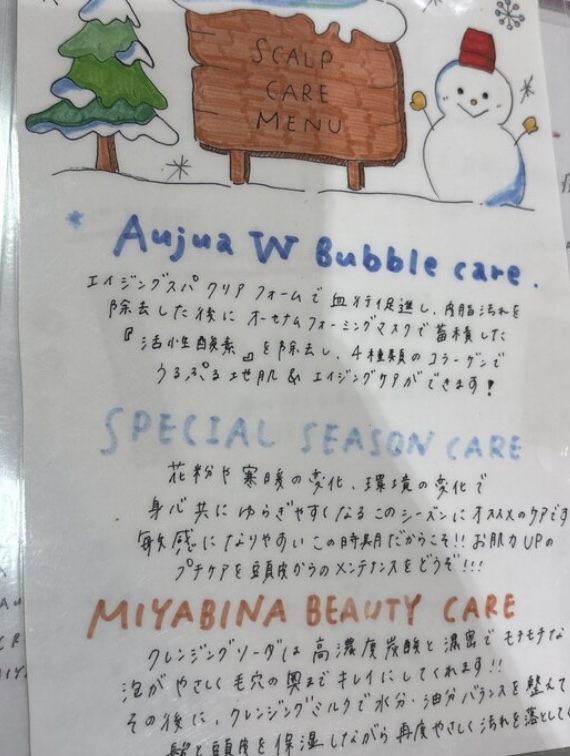 SCALP
CARE
MENU
Aujua W Bubble care.
エイジングスパ クリアフォームで 血行促進し、皮脂汚れを
除去した後に オーセナムフォーミングマスクで蓄積した
『活性酸素』を除去し、4種類のコラーゲンで
うるぷる地肌 & エイジングケアができます!
SPECIAL SEASON CARE
花粉や寒暖の変化、環境の変化で
身心共に ゆらぎやすくなるこのシーズンにオススメのケアです
敏感になりやすいこの時期だからこそ!! お肌力UPの
プチケアを頭皮からのメンテナンスをどうぞ!!!
MIYABINA BEAUTY CARE
クレンジングソーダは 高濃度炭酸と濃密でモチモチな
泡がやさしく毛穴の奥までキレイにしてくれます!!
その後に、クレンジングミルクで水分・油分バランスを整えて
髪と頭皮を保湿しながら再度やさしく汚れを落としく